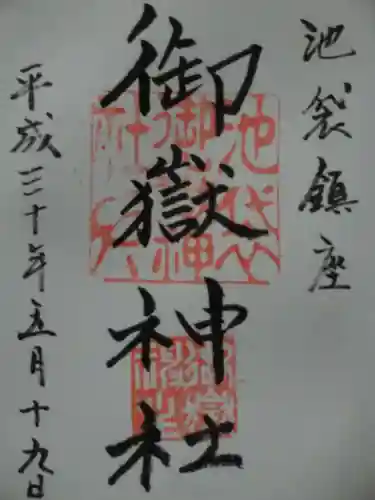 池袋鎮座
御嶽神社
平成三十年五月十九日